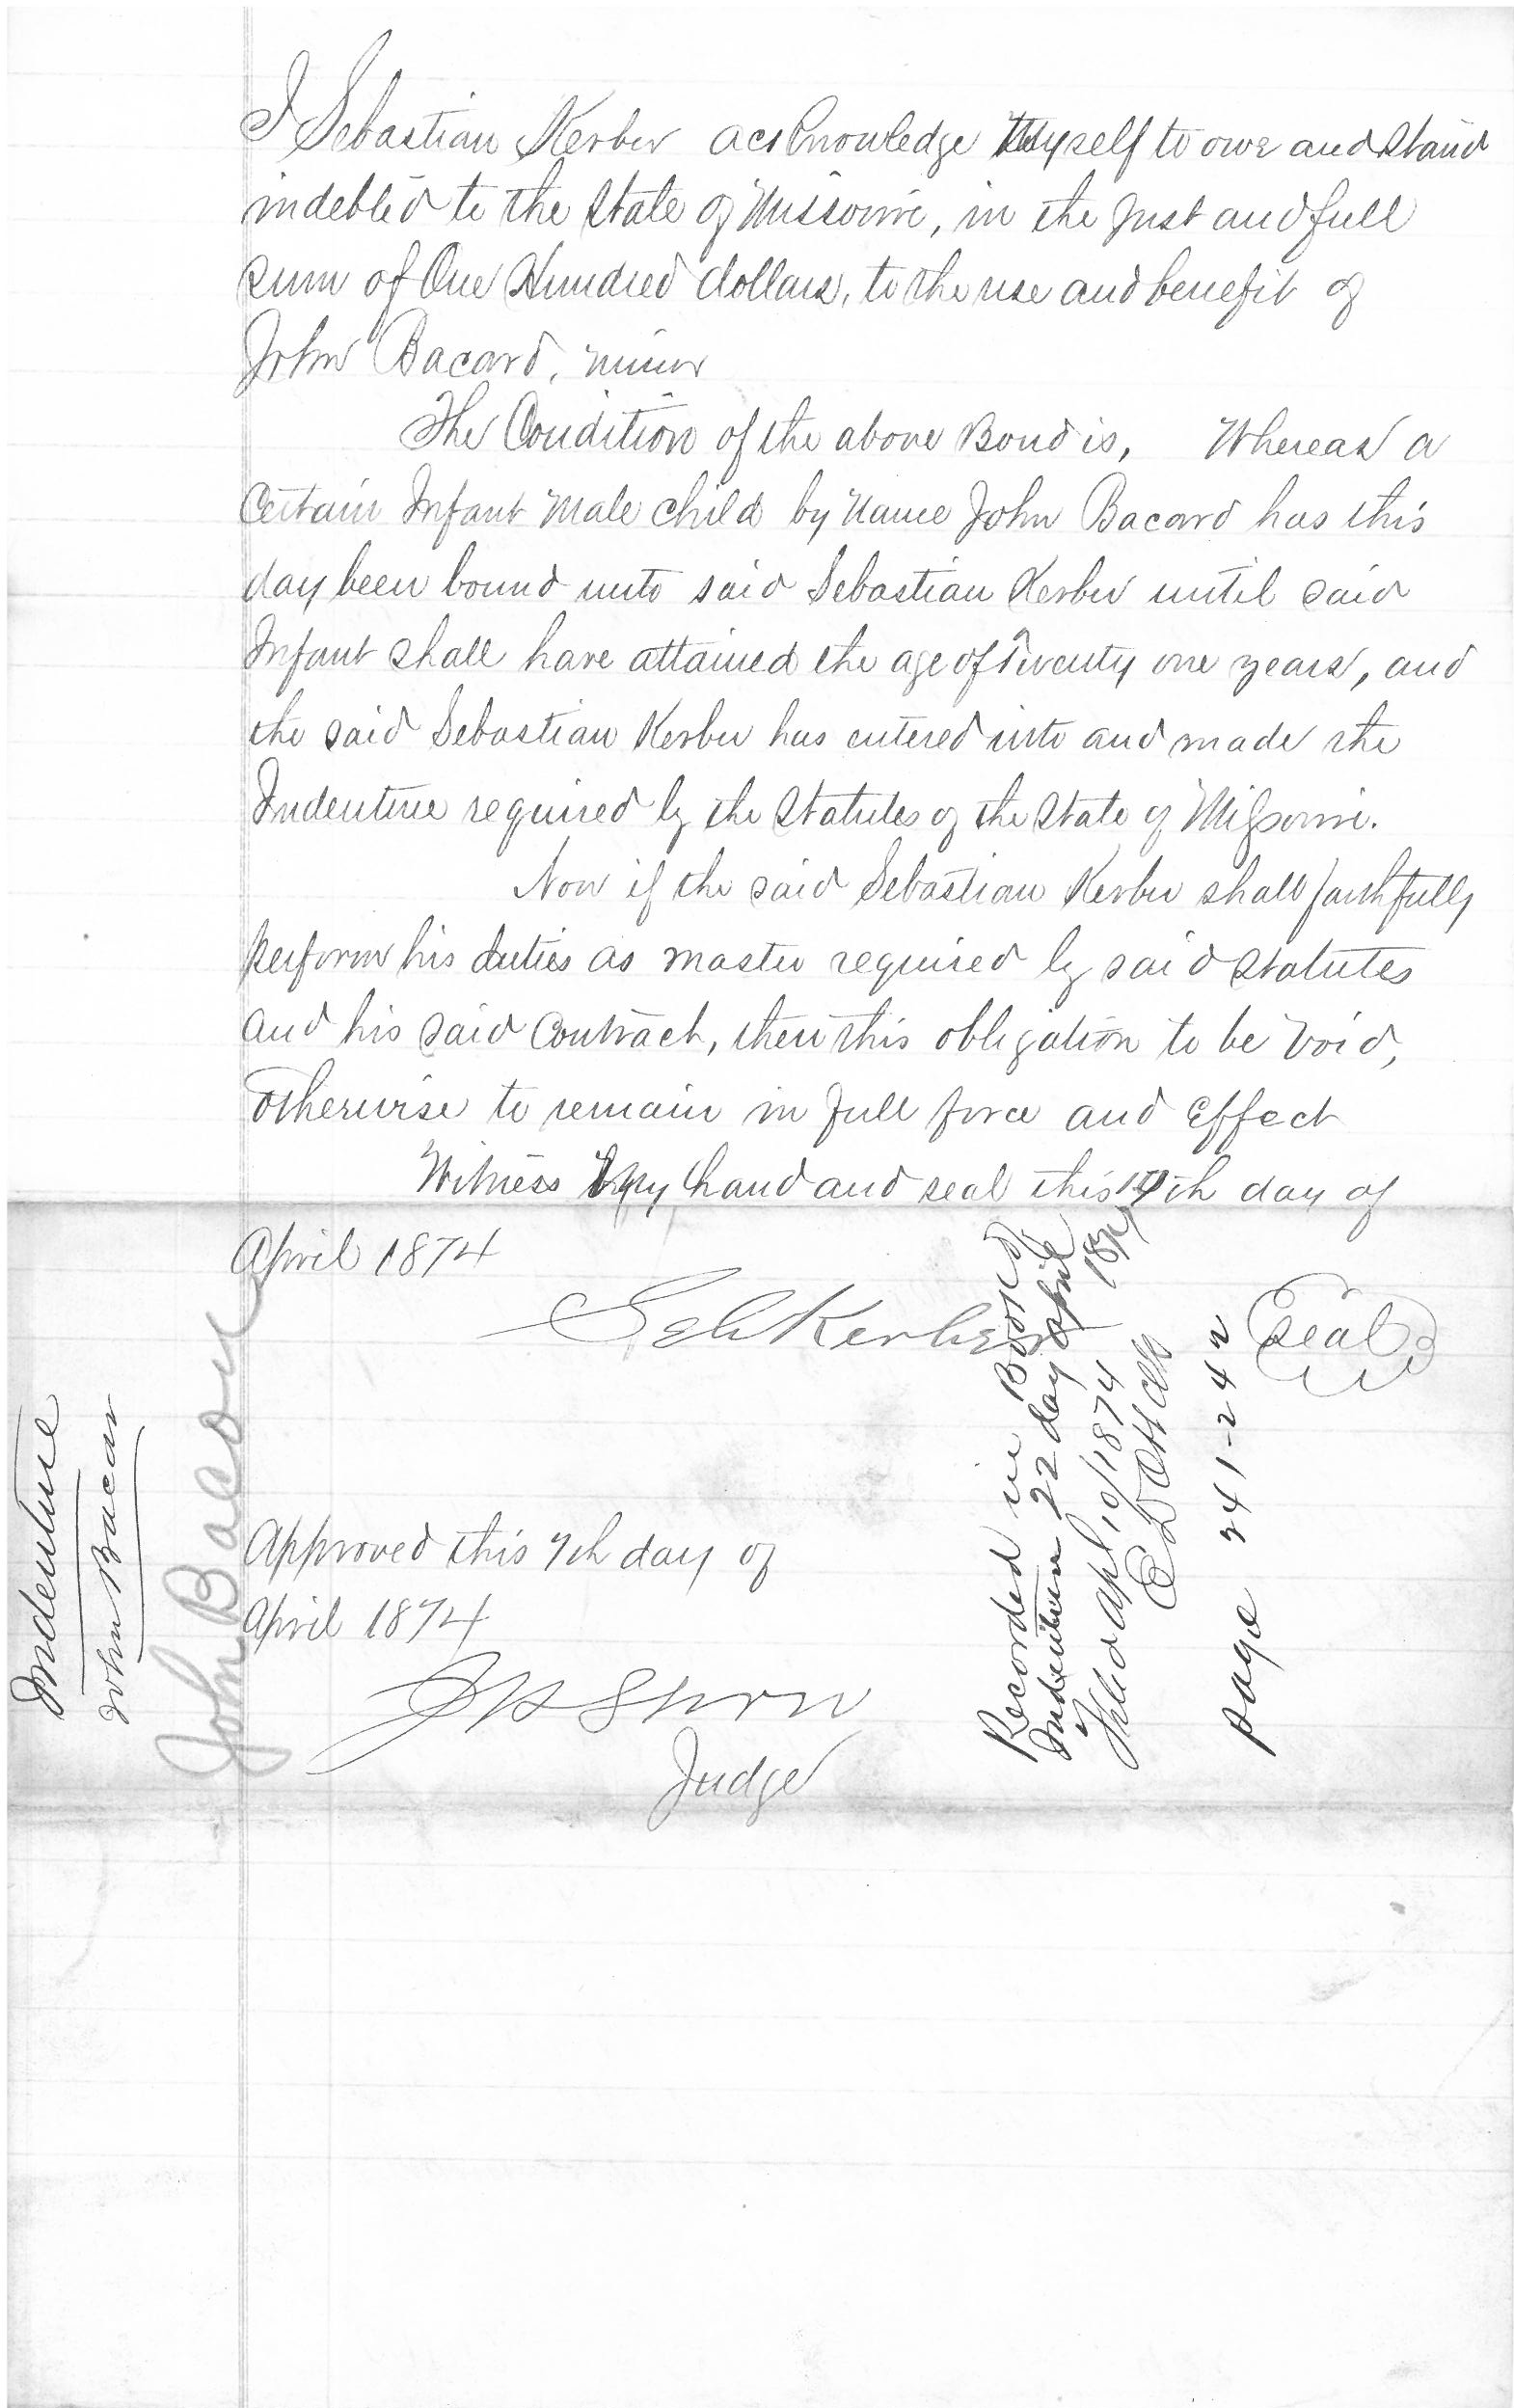 I Sebastian Kerber acknowledge myself to owe and stand
indebted to the State of Missouri, in the just and full
sum of One Hundred dollars, to the use and benefit of
John Bacard, minor
The Condition of the above Bond is, Whereas a
Certain Infant Male child by name John Bacard has this
day been bound unto said Sebastian Kerber until said
Infant shall have attained the age of Twenty one years, and
the said Sebastian Kerber has entered into and made the
Indenture required by the Statutes of the State of Missouri.
Now if the said Sebastian Kerber shall faithfully
perform his duties as master required by said statutes
and his said Contract, then this obligation to be void,
otherwise to remain in full force and effect
Witness my hand and seal this day of
April 1874
Seb Kerber
Seal
Approved this 7th day of
April 1874
Judge
Indenture
John Bacar
John Bacon
Recorded in Book
Indenture 22 day April
1874
Filed Apl 10/1874
page 241-242